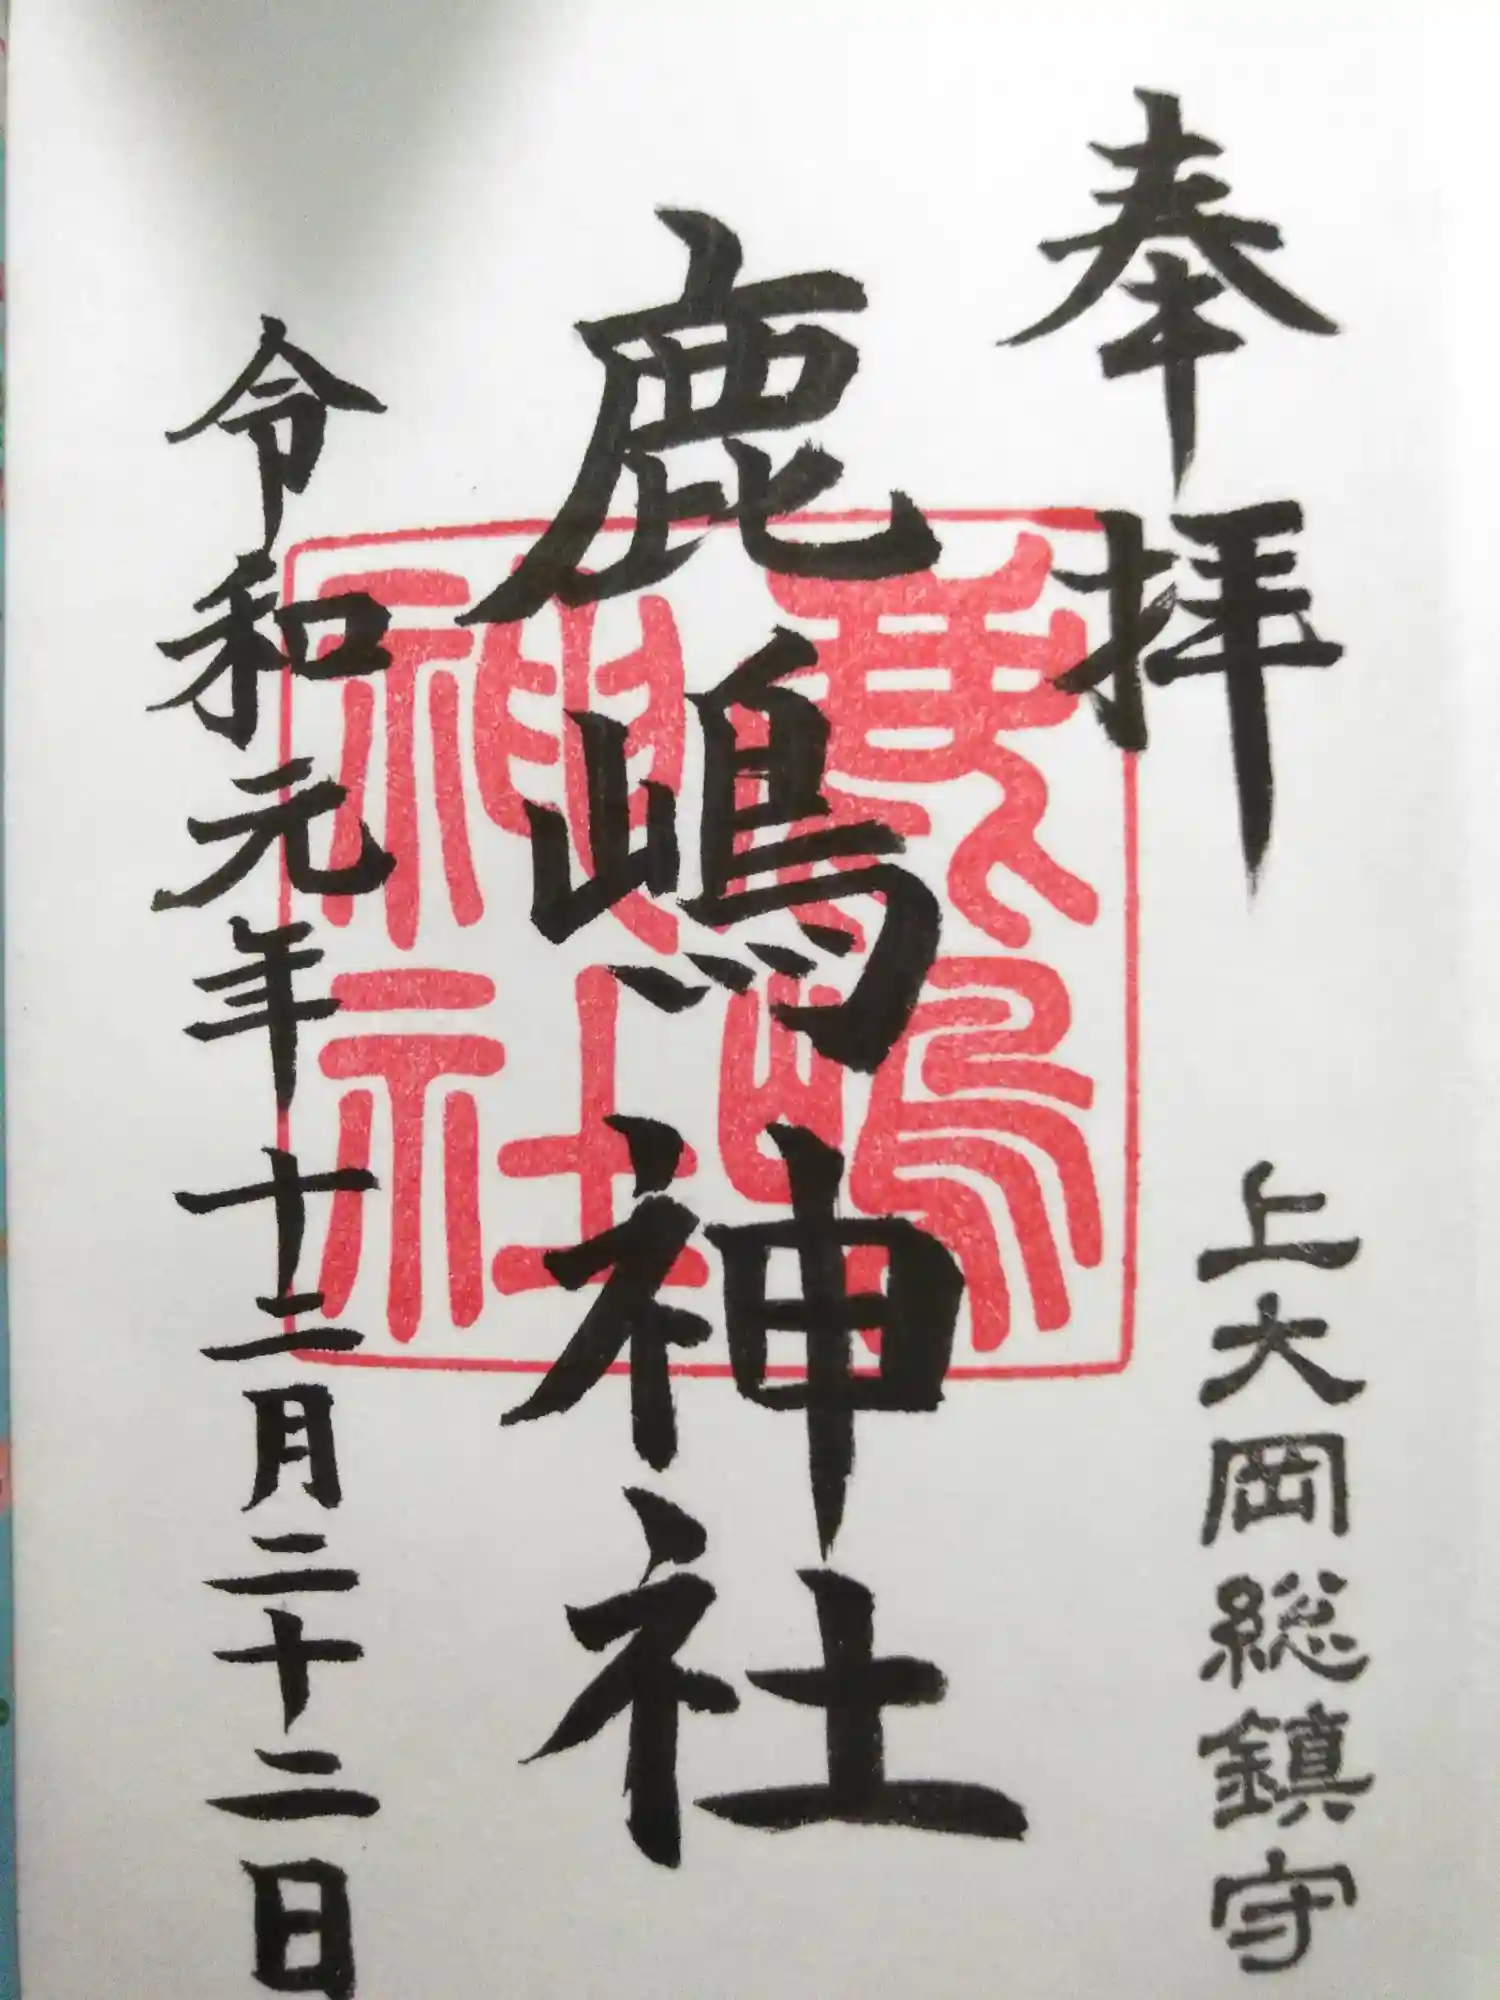 奉拝
上大岡総鎮守
鹿嶋神社
鹿嶋神社
令和元年十二月二十二日